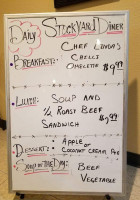 Daily Stockyard Diner
Chef Lunda's
Breakfast: Chelli
Omelette $9.99
Lunch: Soup and
1/2 Roast Beef
Sandwich $9.99
Dessert: Apple or
Coconut Cream Pie
Soup of the Day: Beef
Vegetable